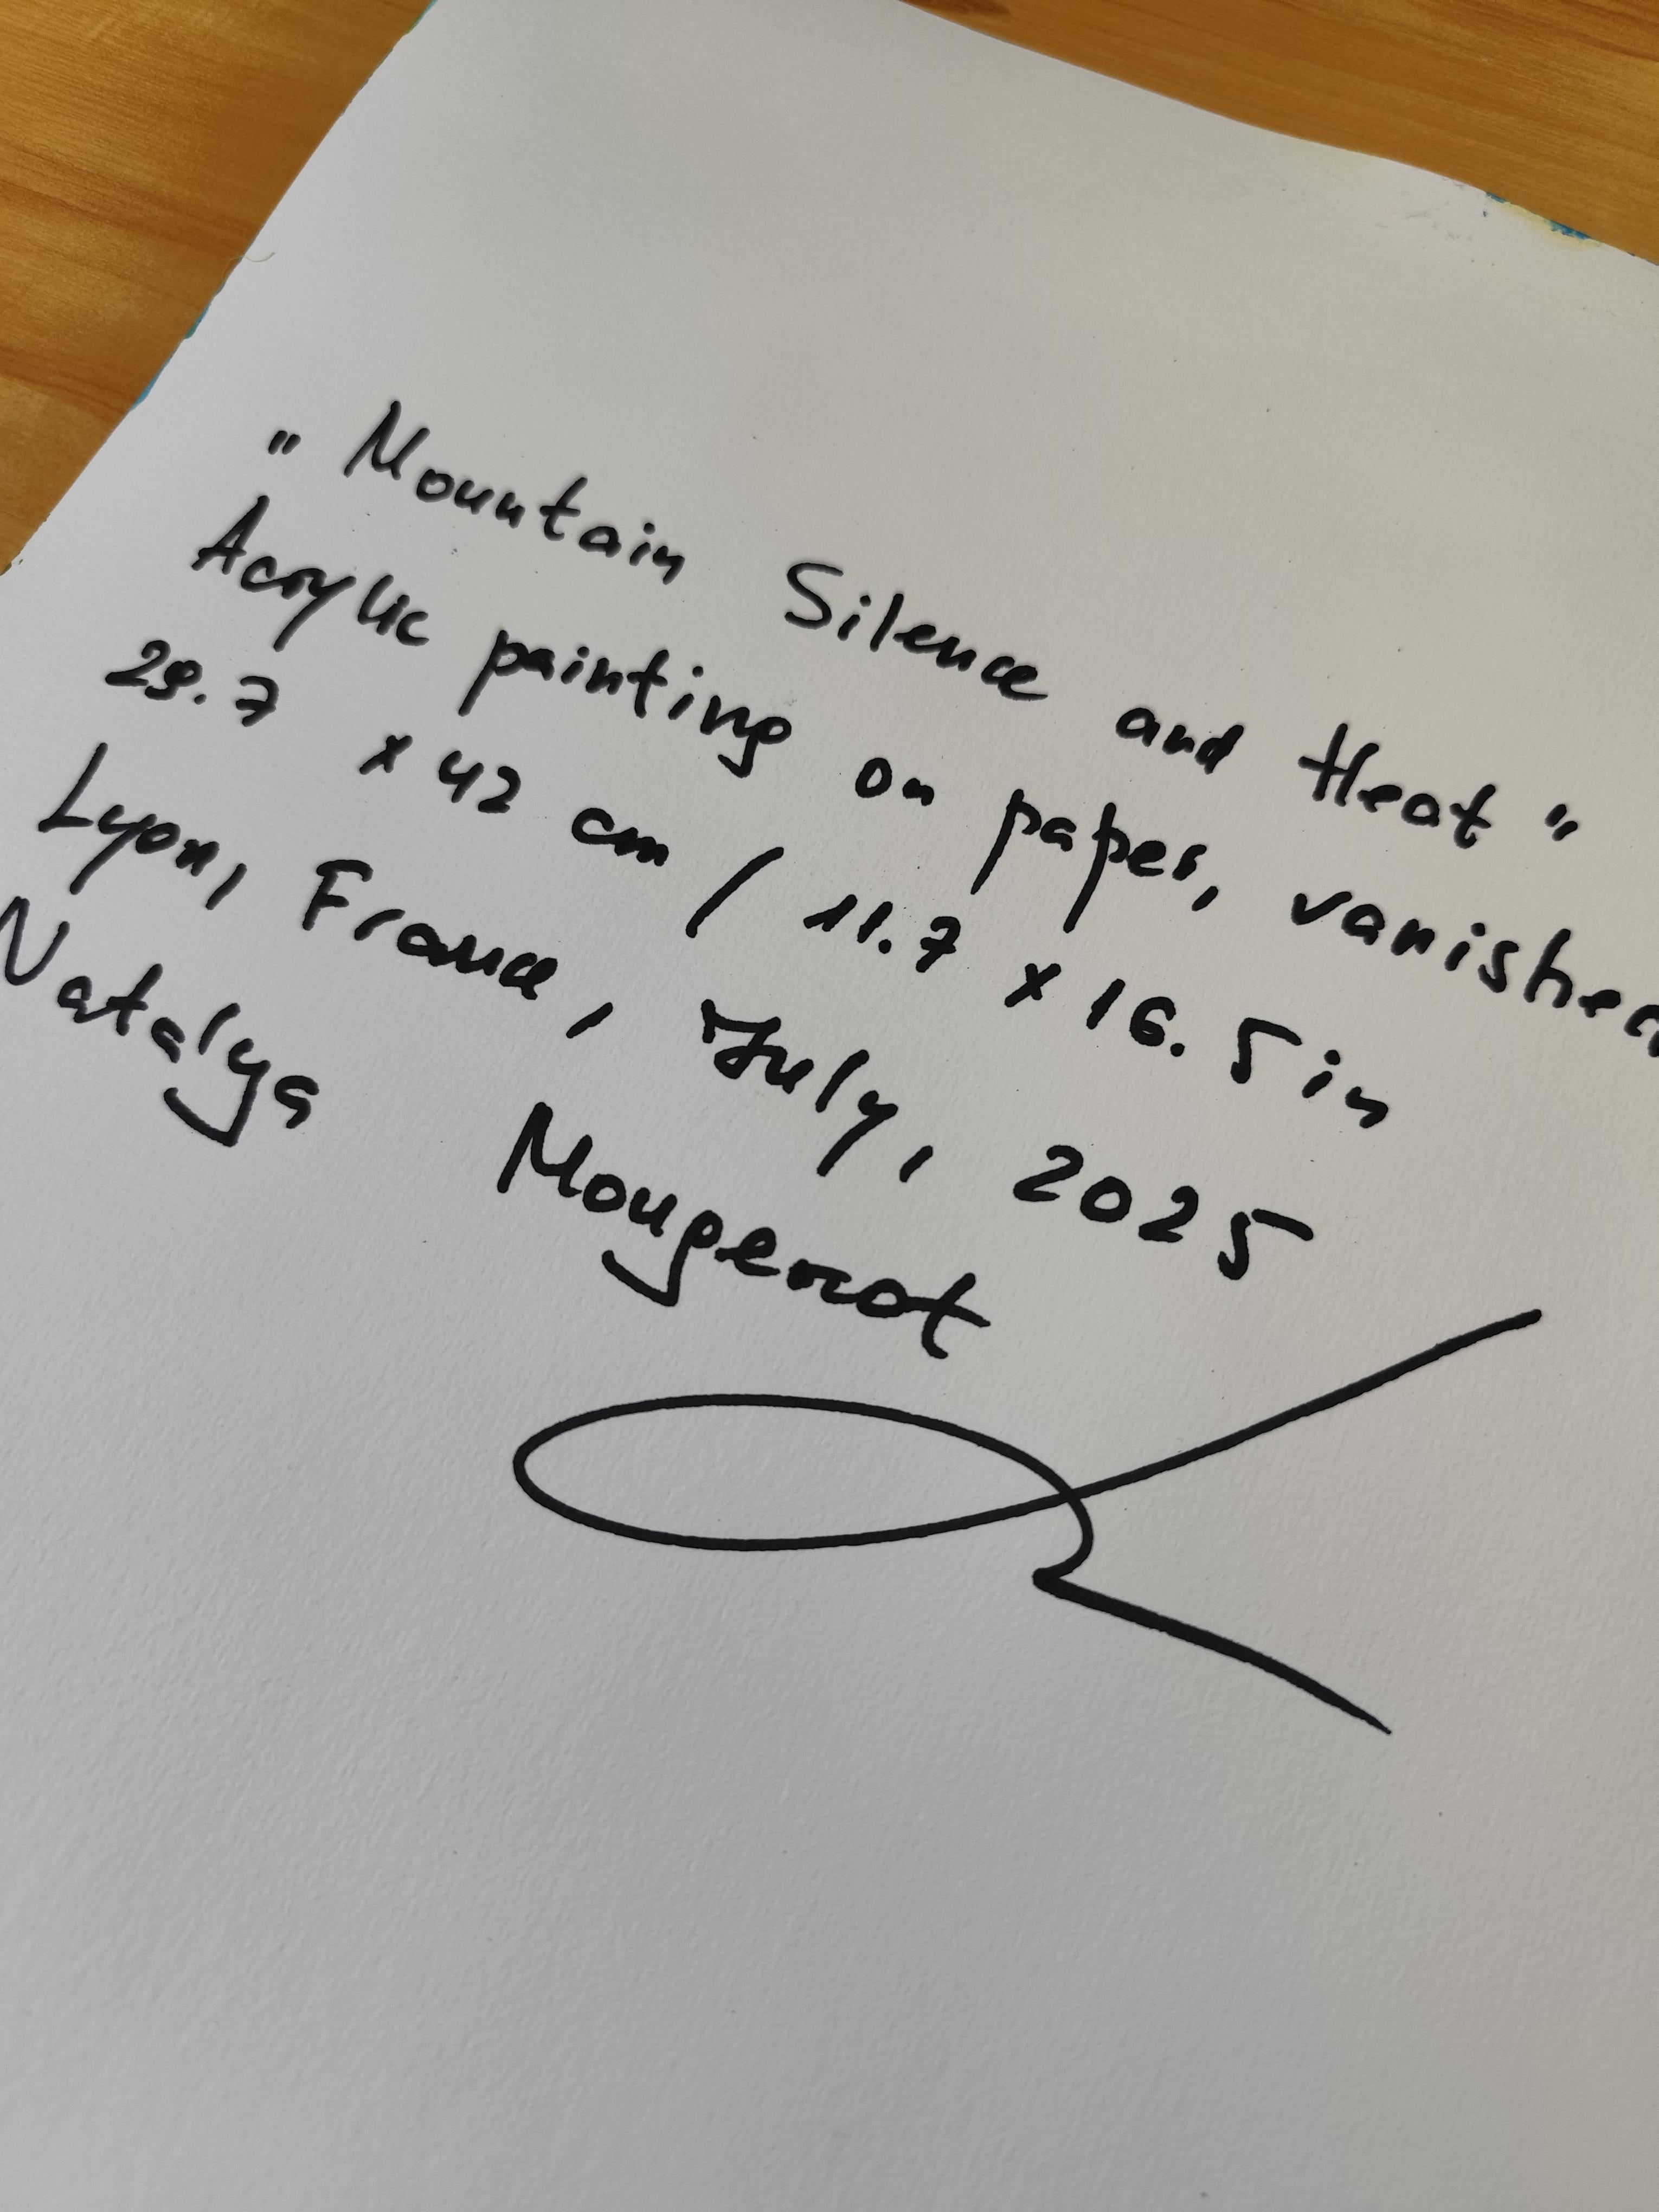 " Mountain Silence and Heat "
Acrylic painting on paper, vanished
29.7 x 42 cm / 11.7 x 16.5 in
Lyon, France, July, 2025
Natalya Mougenot